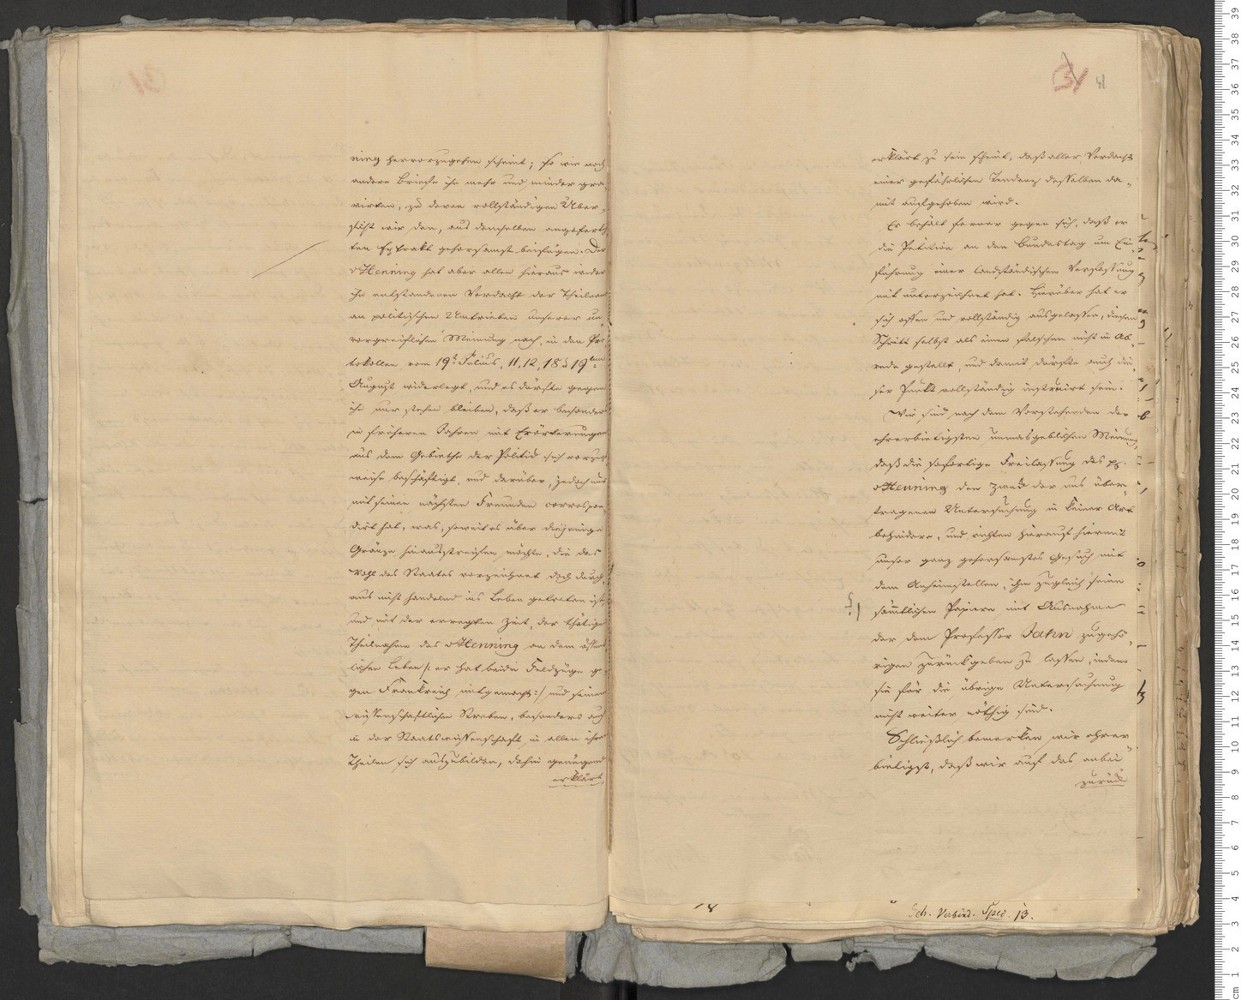 31
41
ning hervorzugehen scheint; so wie noch
andere Briefe ihn mehr und minder gra-
viren, zu deren vollständigen Über-
sicht wir den, aus denselben angefertig-
ten Extrakt gehorsamst beifügen. Der
v Henning hat aber allen hieraus wider
ihn entstandenen Verdacht der Theilnahme
an politischen Umtrieben unserer un-
vorgreiflichen Meinung nach, in den Pro-
tokollen vom 19t Julius, 11, 12, 18 u 19ten
August widerlegt, und es dürfte gegen
ihn nur stehen bleiben, daß er besonders
in früheren Jahren mit Erörterungen
aus dem Gebiethe der Politik sich vorzugs-
weise beschäftigt, und darüber, jedoch nur
mit seinen nächsten Freunden correspon-
dirt hat, was, soweit es über diejenige
Gränze hinausstreifen möchte, die das
Wohl des Staates vorzeichnet doch durch-
aus nicht handelnd ins Leben getreten ist
und mit der erregten Zeit, der thätigen
Theilnahme des v Henning an dem öffent-
lichen Leben /: er hat beide Feldzüge ge-
gen Frankreich mitgemacht :/ und seinem
wissenschaftlichen Streben, besonders auch
in der Staatswissenschaft in allen ihren
Theilen sich auszubilden, dahin genügend
erklärt
erklärt zu sein scheint, daß aller Verdacht
einer gefährlichen Tendenz desselben da-
mit aufgehoben wird.
Es behält ferner gegen sich, daß er
die Petition an den Bundestag um Ein-
führung einer landständischen Verfassung
mit unterzeichnet hat. Hierüber hat er
sich offen und vollständig ausgelassen, diesen
Schritt selbst als einen falschen nicht in Ab-
rede gestellt, und damit dürfte auch die-
ser Punkt vollständig instruirt sein.
Wir sind nach dem Vorstehenden der
ehrerbietigsten unmasgeblichen Meinung,
daß die sofortige Freilassung des pp.
v Henning den Zweck der uns über-
tragenen Untersuchung in keiner Art
behindere, und richten hierauf hiermit
unser ganz gehorsamstes Gesuch mit
dem Anheimstellen, ihm zugleich seine
sämmtlichen Papiere mit Ausnahme
der dem Professor Jahn zugehö-
rigen zurückgeben zu lassen, indem
sie für die übrige Untersuchung
nicht weiter nöthig sind.
Schließlich bemerken wir ehrer-
bietigst, daß wir auf das anbei
zurück
Geh. Verbind. Spec. 13.